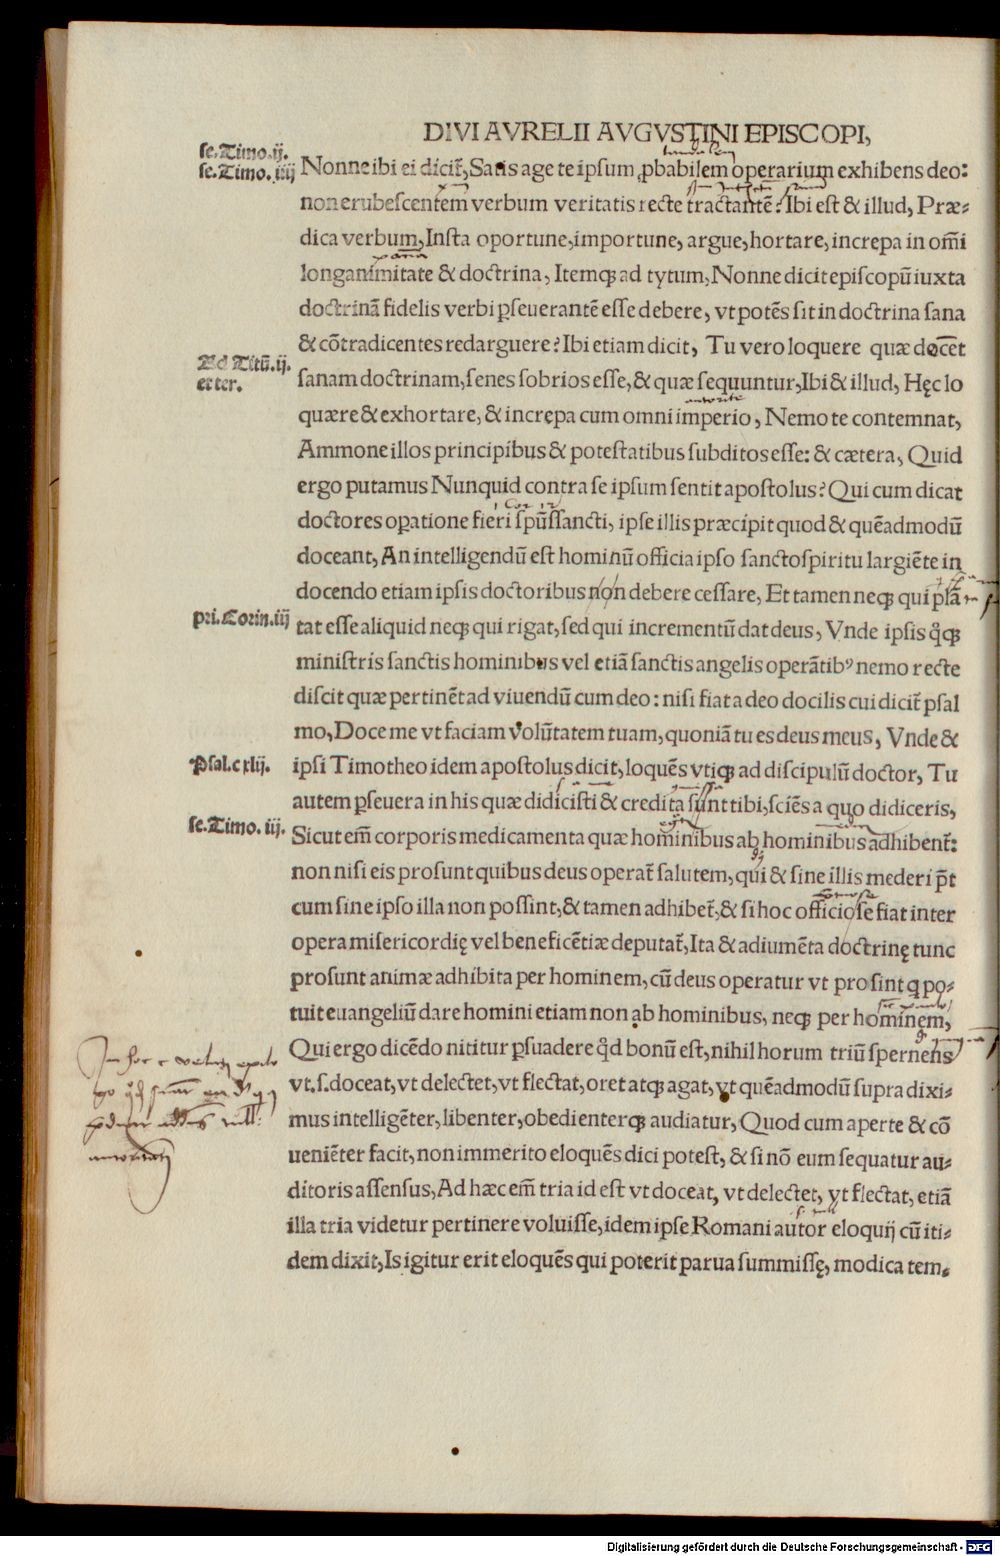 DIVI AVRELII AVGVSTINI EPISCOPI,
se.Timo.ij.
se.Timo.iiij
Nonne ibi ei dicit᷑, Satis age te ipsum ꝓbabilem operarium exhibens deo:
non erubescentem verbum veritatis recte tractantē? Ibi est & illud, Præ-
dica verbum, Insta oportune, importune, argue, hortare, increpa in om̄i
longanimitate & doctrina, Itemqꝫ ad tytum, Nonne dicit episcopū iuxta
doctrinā fidelis verbi ꝑseuerantē esse debere, vt potēs sit in doctrina sana
& cōtradicentes redarguere? Ibi etiam dicit, Tu vero loquere quæ docet
Ad Titū.ij.
et ter.
sanam doctrinam, senes sobrios esse, & quæ sequuntur, Ibi & illud, Hęc lo
quære & exhortare, & incrępa cum omni imperio, Nemo te contemnat,
Ammone illos principibus & potestatibus subditos esse: & cætera, Quid
ergo putamus Nunquid contra se ipsum sentit apostolus? Qui cum dicat
doctores oꝑatione fieri spūssancti, ipse illis præcipit quod & quēadmodū
doceant, An intelligendū est hominū officia ipso sanctospiritu largiēte in
docendo etiam ipsis doctoribus non debere cessare, Et tamen neqꝫ qui plā
pri.Corin.iij
tat esse aliquid neqꝫ qui rigat, sed qui incrementū dat deus, Vnde ipsis qͦqꝫ
ministris sanctis hominibus vel etiā sanctis angelis operātibꝰ nemo recte
discit quæ pertinēt ad viuendū cum deo: nisi fiat a deo docilis cui dicit᷑ psal
mo, Doce me vt faciam volūtatem tuam, quoniā tu es deus meus, Vnde &
Psal.cxlij.
ipsi Timotheo idem apostolus dicit, loquēs vtiqꝫ ad discipulū doctor, Tu
autem ꝑseuera in his quæ didicisti & credita sunt tibi, sciēs a quo didiceris,
se.Timo.iij.
Sicut em̄ corporis medicamenta quæ hominibus ab hominibus adhibent᷑:
non nisi eis prosunt quibus deus operat᷑ salutem, qui & sine illis mederi p̄t
cum sine ipso illa non possint, & tamen adhibet᷑, & si hoc officiose fiat inter
opera misericordię vel beneficētiæ deputat᷑, Ita & adiumēta doctrinę tunc
prosunt animæ adhibita per hominem, cū deus operatur vt prosint q po-
tuit euangeliū dare homini etiam non ab hominibus, neqꝫ per hominem,
Qui ergo dicēdo nititur ꝑsuadere qd̄ bonū est, nihil horum triū spernens
vt.s.doceat, vt delectet, vt flectat, oret atqꝫ agat, vt quēadmodū supra dixi-
mus intelligēter, libenter, obedienterqꝫ audiatur, Quod cum aperte & cō
ueniēter facit, non immerito eloquēs dici potest, & si nō eum sequatur au-
ditoris assensus, Ad hæc em̄ tria id est vt doceat, vt delectet, vt flectat, etiā
illa tria videtur pertinere voluisse, idem ipse Romani autor eloquij cū iti-
dem dixit, Is igitur erit eloquēs qui poterit parua summissę, modica tem-
Digitalisierung gefördert durch die Deutsche Forschungsgemeinschaft - DFG